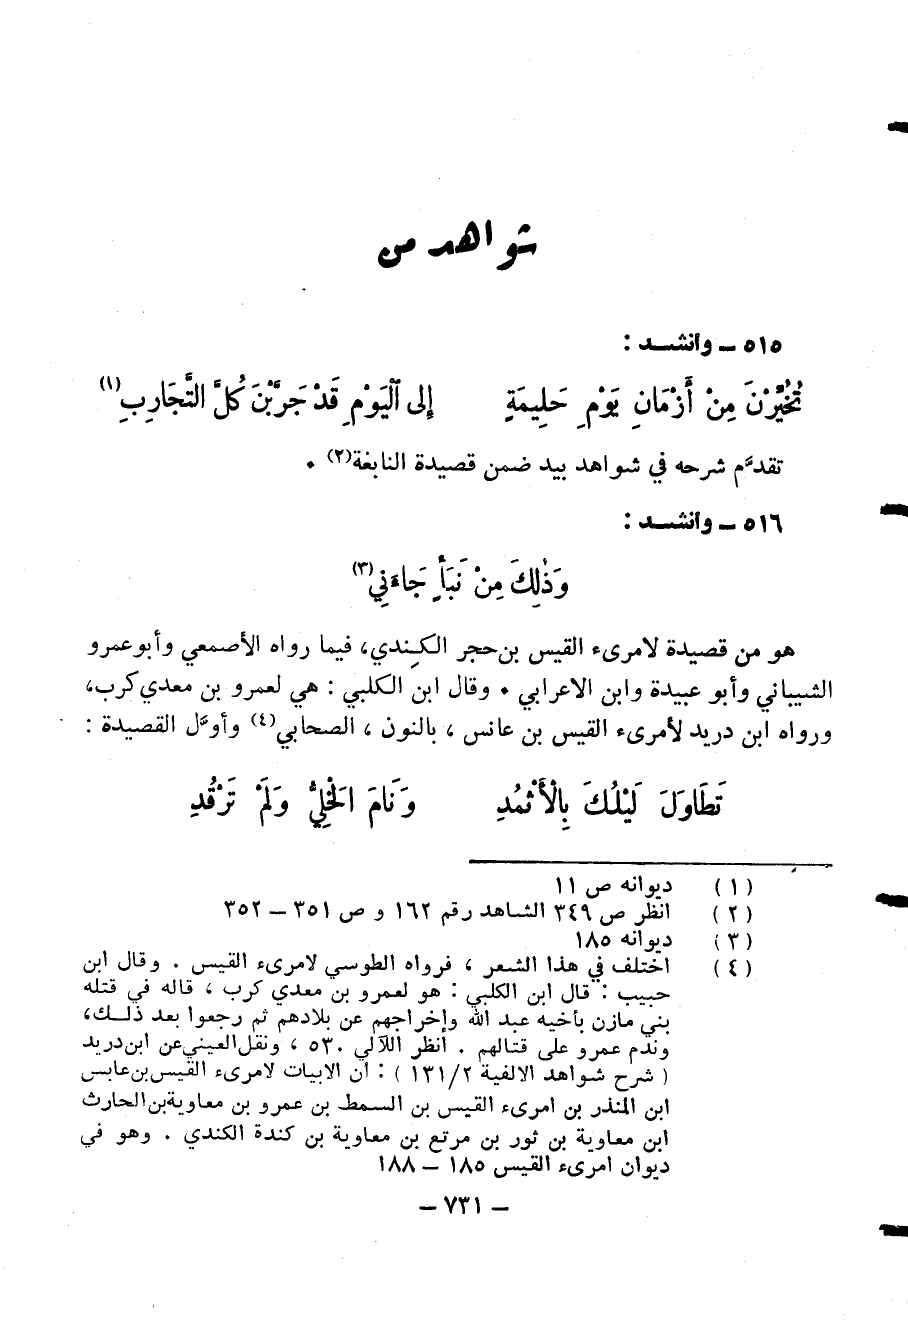 شواهد من
٥١٥ - وأنشد :
تُخُيِّرْنَ مِنْ أَزْمَانِ يَوْمِ حَلِيمَةٍ إلى اَلْيَوْمِ قَدْ جَرَّبْنَ كُلَّ التَّجَارِبِ (١)
تقدَّم شرحه في شواهد بيد ضمن قصيدة النابغة (٢) ٠
٥١٦ - وأنشد :
وَذَٰلِكَ مِنْ نَبَأٍ جَاءَنِي (٣)
هو من قصيدة لامرىء القيس بن حجر الكِندي، فيما رواه الأصمعي وأبو عمرو
الشيباني وأبو عبيدة وابن الاعرابي ٠ وقال ابن الكلبي : هي لعمرو بن معدي كرب،
ورواه ابن دريد لأمرىء القيس بن عانس ، بالنون ، الصحابي (٤) وأوَّل القصيدة :
تَطَاوَلَ لَيْلُكَ بِالْأَثْمُدِ وَنَامَ الْخَلِيُّ وَلَمْ تَرْقُدِ
(١) ديوانه ص ١١
(٢) انظر ص ٣٤٩ الشاهد رقم ١٦٢ و ص ٣٥١ - ٣٥٢
(٣) ديوانه ١٨٥
(٤) اختلف في هذا الشعر ، فرواه الطوسي لامرىء القيس . وقال ابن
حبيب : قال ابن الكلبي : هو لعمرو بن معدي كرب ، قاله في قتله
بني مازن بأخيه عبد الله وإخراجهم عن بلادهم ثم رجعوا بعد ذلك،
وندم عمرو على قتالهم . أنظر اللآلي ٥٣٠ ، ونقل العيني عن ابن دريد
( شرح شواهد الالفية ١٣١/٢ ) : ان الابيات لامرىء القيس بن عابس
ابن المنذر بن امرىء القيس بن السمط بن عمرو بن معاوية بن الحارث
ابن معاوية بن ثور بن مرتع بن معاوية بن كندة الكندي . وهو في
ديوان امرىء القيس ١٨٥ - ١٨٨
- ٧٣١ -